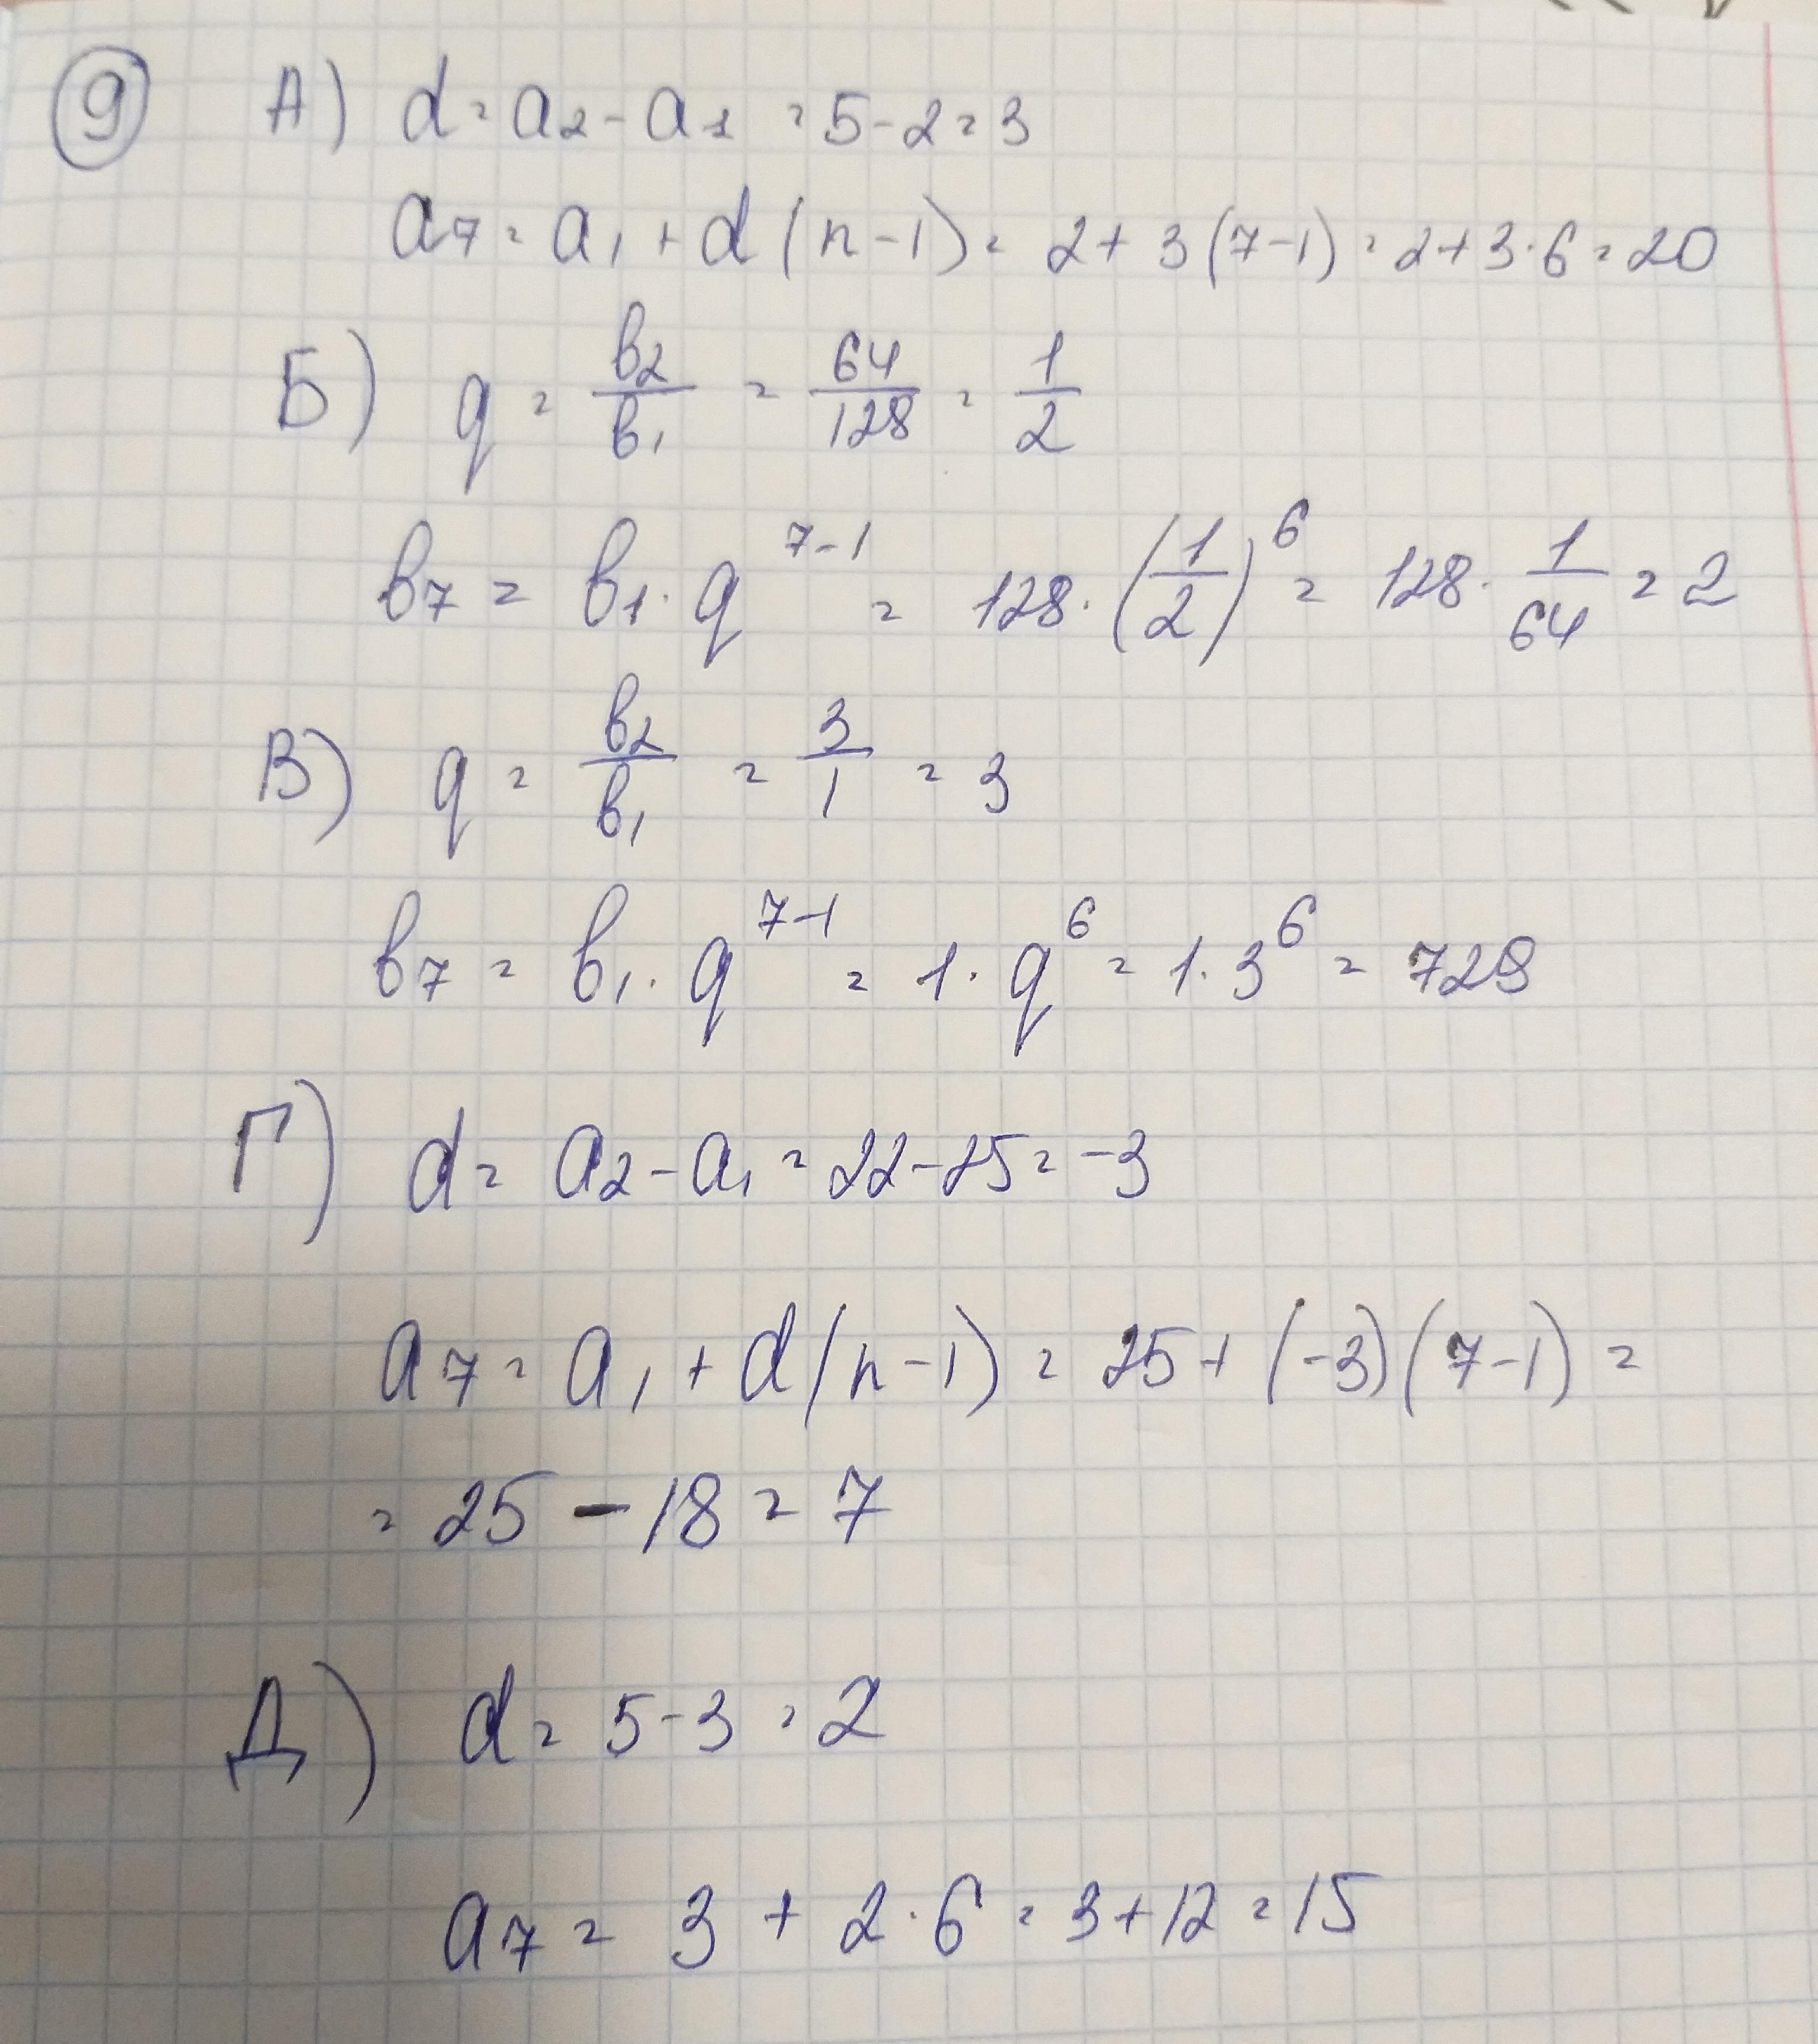 9 А) d = a₂ - a₁ = 5 - 2 = 3
a₇ = a₁ + d (n - 1) = 2 + 3 (7 - 1) = 2 + 3 · 6 = 20
Б) q = b₂/b₁ = 64/128 = 1/2
b₇ = b₁ · q⁷⁻¹ = 128 · (1/2)⁶ = 128 · 1/64 = 2
В) q = b₂/b₁ = 3/1 = 3
b₇ = b₁ · q⁷⁻¹ = 1 · q⁶ = 1 · 3⁶ = 729
Г) d = a₂ - a₁ = 22 - 25 = -3
a₇ = a₁ + d (n - 1) = 25 + (-3) (7 - 1) =
= 25 - 18 = 7
Д) d = 5 - 3 = 2
a₇ = 3 + 2 · 6 = 3 + 12 = 15